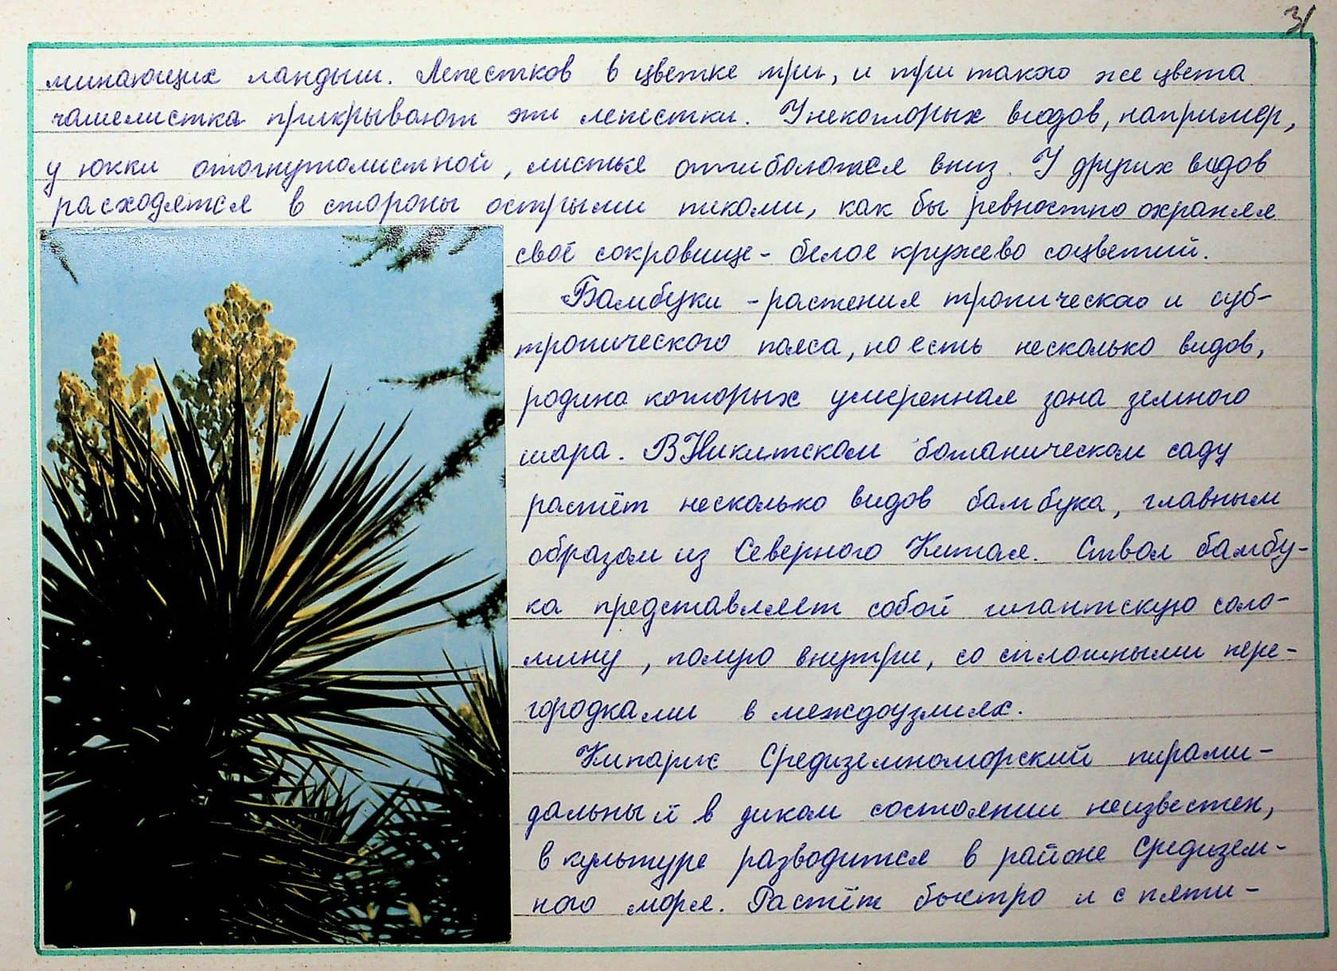 31
минающих ландыш. Лепестков в цветке три, и три такко же цвета
чашелистка прикрывают эти лепестки. У некоторых видов, например,
у юкки отогнутолистной, листья отгибаются вниз. У других видов
расходятся в стороны острыми пиками, как бы ревностно охраняя
своё сокровище - белое кружево соцветий.
Бамбуки - растения тропического и суб-
тропического пояса, но есть несколько видов,
родина которых умеренная зона земного
шара. В Никитском ботаническом саду
растёт несколько видов бамбука, главным
образом из Северного Китая. Ствол бамбу-
ка представляет собой гигантскую соло-
мину, полую внутри, со сплошными пере-
городками в междоузлиях.
Кипарис Средиземноморский пирами-
дальный в диком состоянии неизвестен,
в культуре разводится в районе Средизем-
ного моря. Растёт быстро и с пяти-